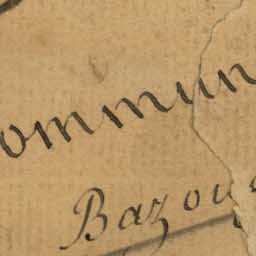 ommun
Bazou